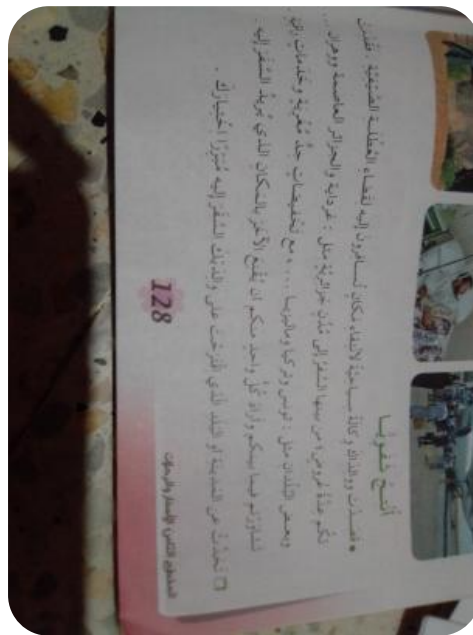 أُنْتِجُ شَفَوِيًّا
• قَصَدْتَ وَوَالِدَاكَ وَكَالَةً سِيَاحِيَّةً لِانْتِقَاءِ مَكَانٍ تُسَافِرُونَ إِلَيْهِ لِقَضَاءِ الْعُطْلَةِ الصَّيْفِيَّةِ ،
لَكُمْ عِدَّةُ عُرُوضٍ؛ مِن بَيْنِهَا السَّفَرُ إِلَى مُدُنٍ جَزَائِرِيَّةٍ مِثْلَ : غرداية والجزائر العاصمة ووهران ...
وبعض البُلْدَانِ مِثْلَ : تونس وتركيا وماليزيا ... ، مع تَخْفِيضَاتٍ جِدّ مُغْرِيَةٍ وَخَدَمَاتٍ
تَشَاوَرْتُم فيما بينكم وأرادَ كُلُّ واحِدٍ منكم أن يُقْنِعَ الآخَرَ بالمَكَانِ الَّذِي يُرِيدُ السَّفَرَ إِلَيْهِ .
❒ تَحَدَّثْ عن المدينة أو البَلَدِ الَّذِي اقْتَرَحْتَ على وَالِدَيْكَ السَّفَرَ إِلَيْهِ مُبَرِّرًا اخْتِيَارَكَ .
المقطع الثامن: الأسفار والرحلات
128